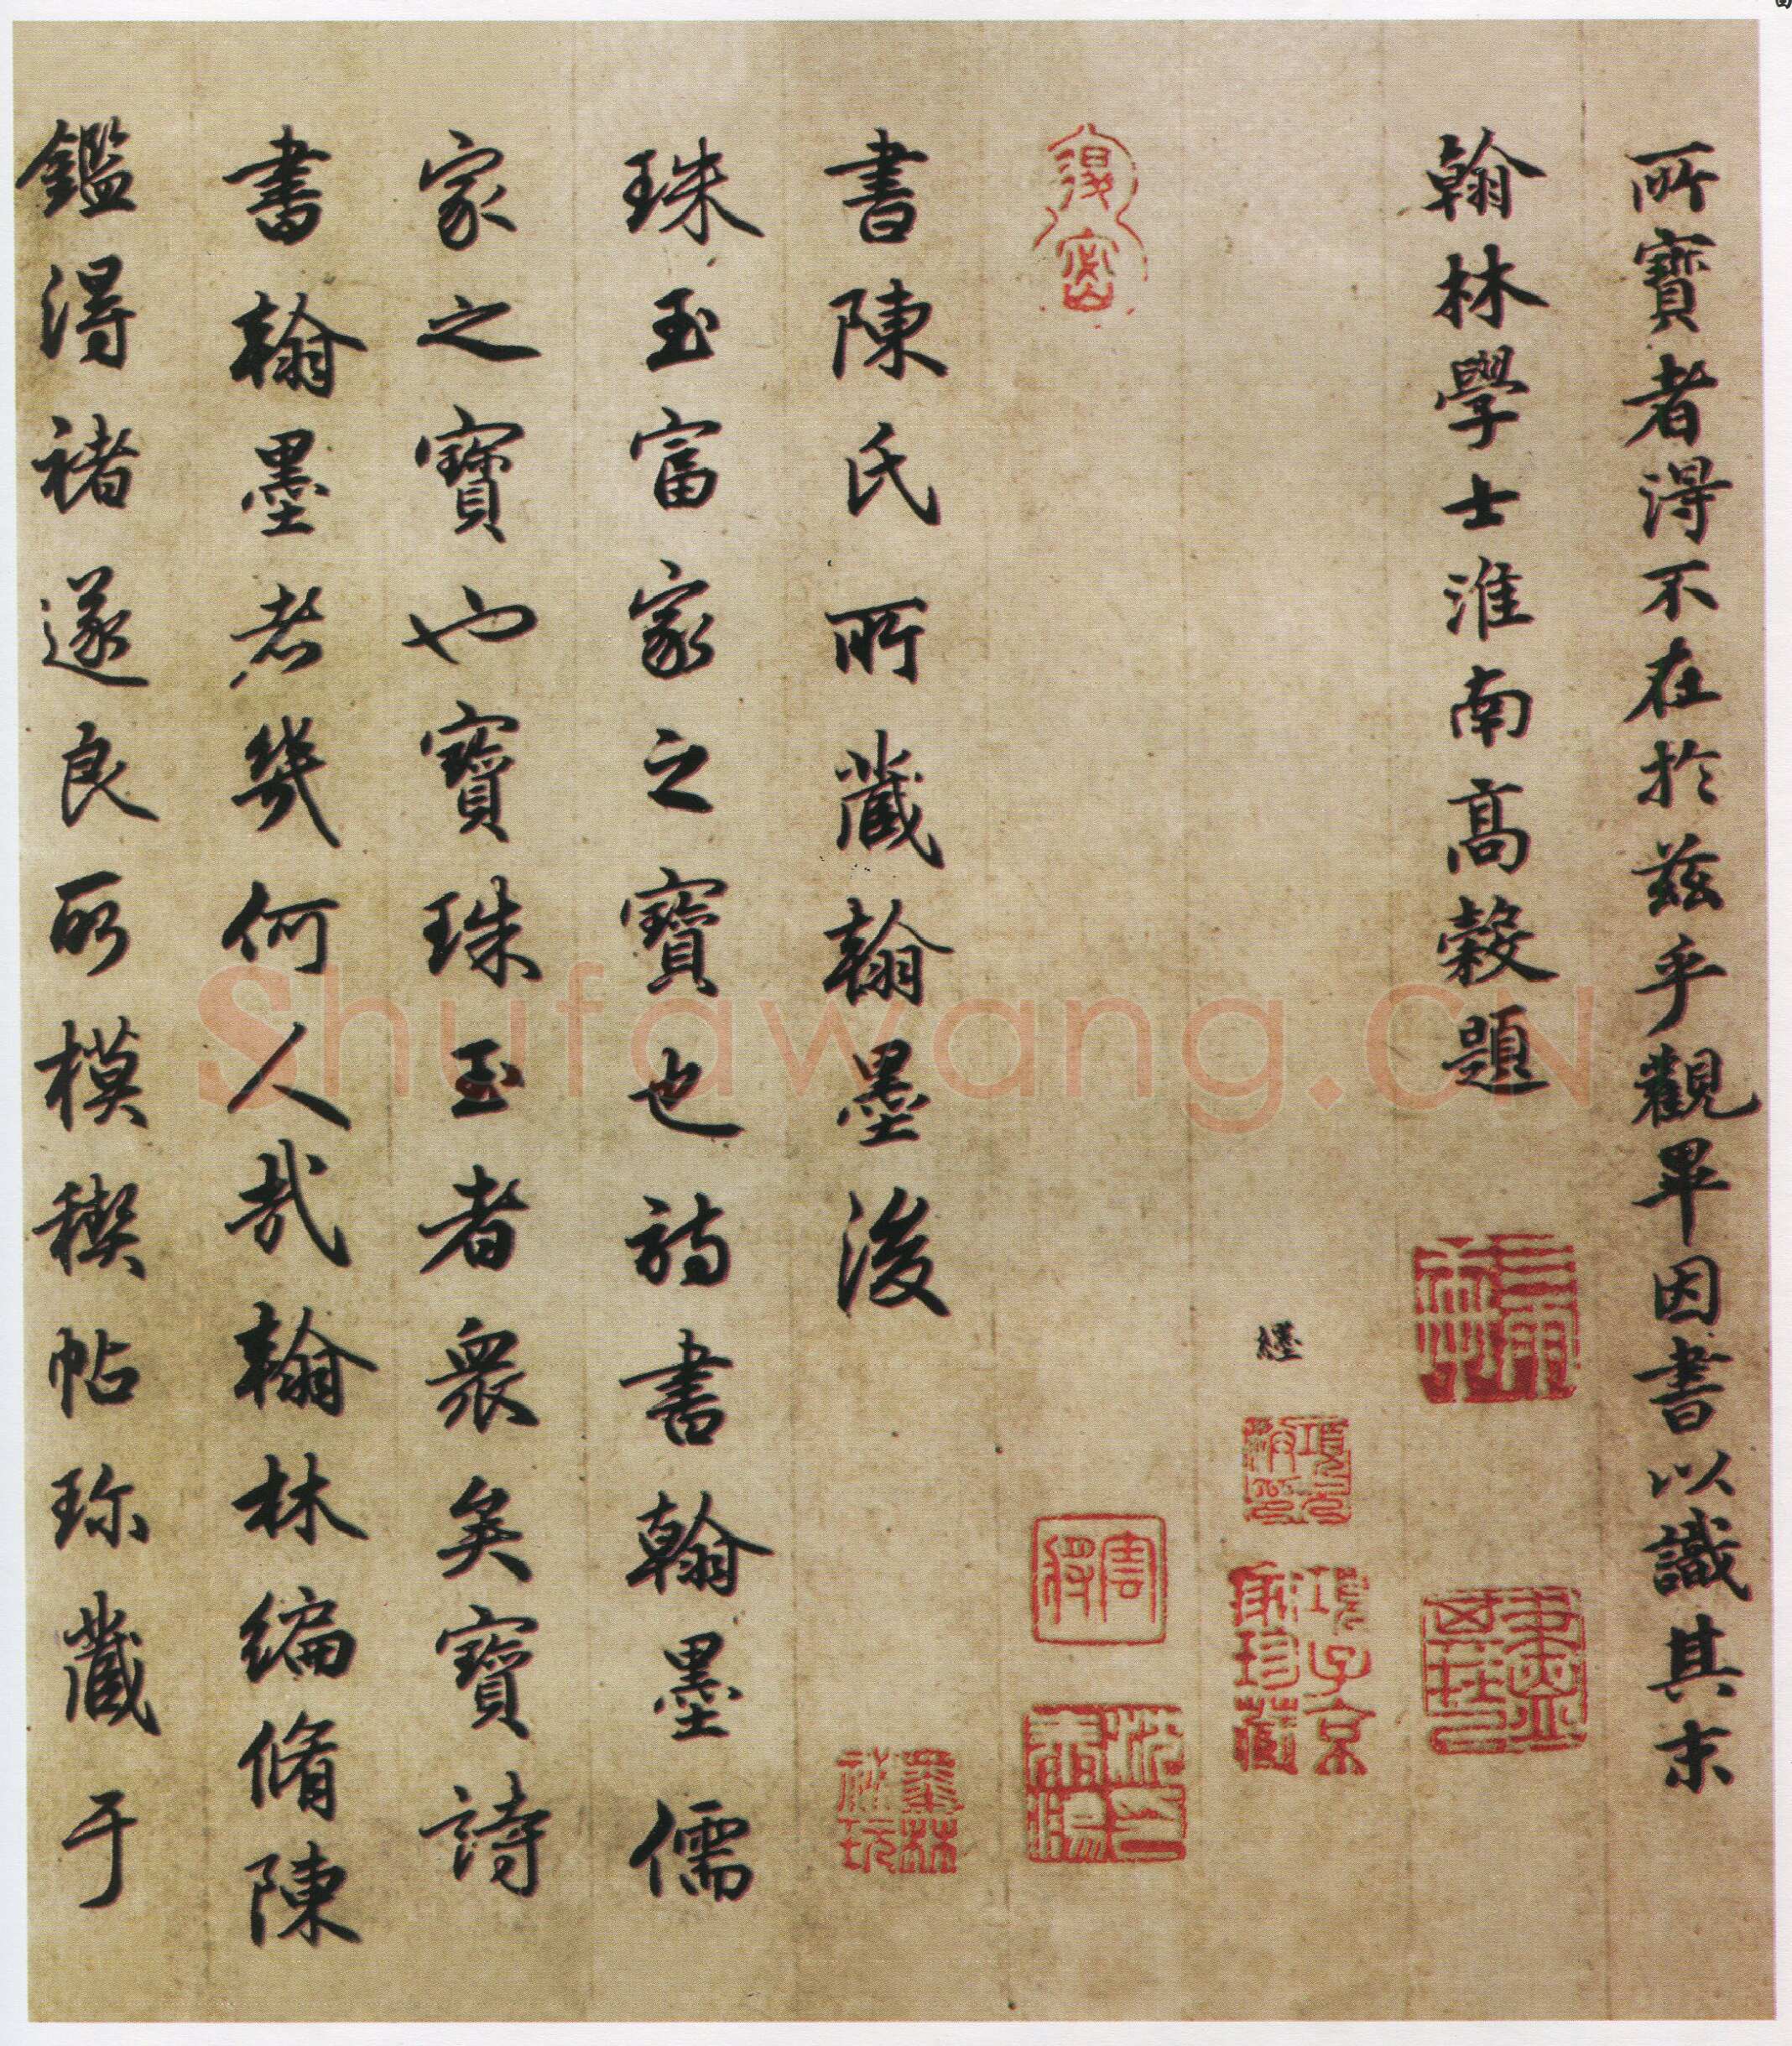 所寶者得不在於茲乎觀畢因書以識其末
翰林學士淮南高穀題
經
項子京家珍藏
書陳氏所藏翰墨後
珠玉富家之寶也詩書翰墨儒
家之寶也寶珠玉者衆矣寶詩
書翰墨者幾何人哉翰林編脩陳
鑑得褚遂良所模禊帖珎藏于
Shufawang.CN